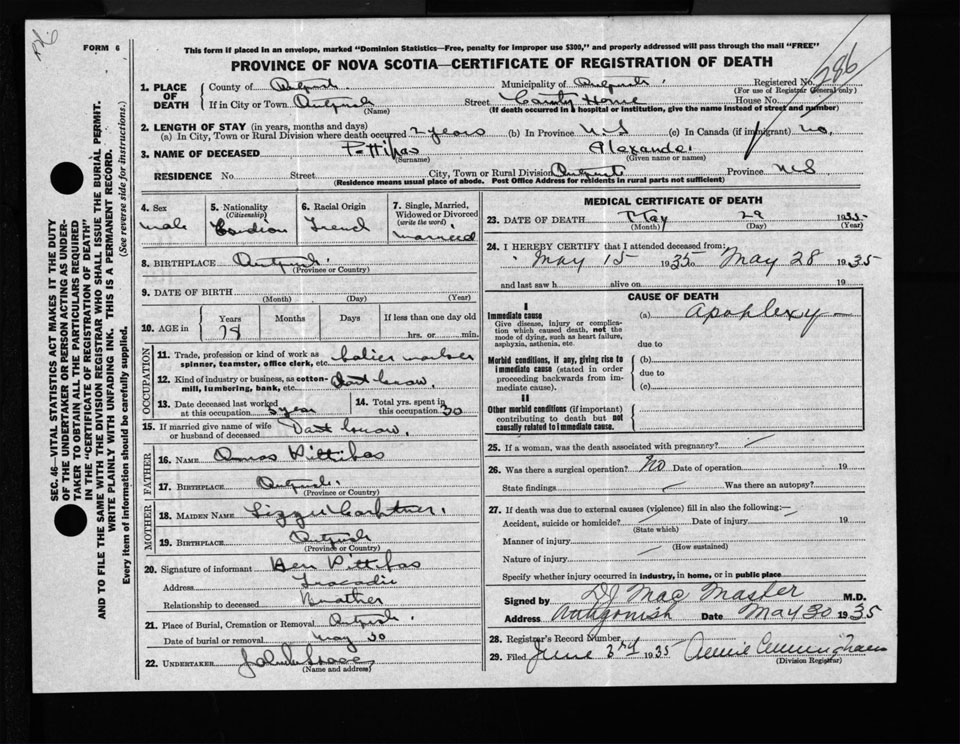 FORM 6
This form if placed in an envelope, marked "Dominion Statistics—Free, penalty for improper use $300," and properly addressed will pass through the mail "FREE"
PROVINCE OF NOVA SCOTIA—CERTIFICATE OF REGISTRATION OF DEATH
286
SEC. 46—VITAL STATISTICS ACT MAKES IT THE DUTY
OF THE UNDERTAKER OR PERSON ACTING AS UNDER-
TAKER TO OBTAIN ALL THE PARTICULARS REQUIRED
IN THE "CERTIFICATE OF REGISTRATION OF DEATH"
AND TO FILE THE SAME WITH THE DIVISION REGISTRAR WHO SHALL ISSUE THE BURIAL PERMIT.
WRITE PLAINLY WITH UNFADING INK. THIS IS A PERMANENT RECORD.
Every item of information should be carefully supplied. (See reverse side for instructions.)
1. PLACE OF DEATH
County of Antgnish Municipality of Antgnish Registered No.
(For use of Registrar General only)
If in City or Town Antgnish Street County Home House No.
(Name) (If death occurred in a hospital or institution, give the name instead of street and number)
2. LENGTH OF STAY (in years, months and days)
(a) In City, Town or Rural Division where death occurred 2 years (b) In Province NS (c) In Canada (if immigrant) no.
3. NAME OF DECEASED Pettipas Alexander
(Surname) (Given name or names)
RESIDENCE No Street City, Town or Rural Division Province NS
(Residence means usual place of abode. Post Office Address for residents in rural parts not sufficient)
4. Sex
male
5. Nationality
(Citizenship)
6. Racial Origin
7. Single, Married,
Widowed or Divorced
(write the word)
married
8. BIRTHPLACE Antgnish
(Province or Country)
9. DATE OF BIRTH
(Month) (Day) (Year)
10. AGE in Years Months Days If less than one day old
78 hrs. or min.
OCCUPATION
11. Trade, profession or kind of work as
spinner, teamster, office clerk, etc.
12. Kind of industry or business, as cotton-
mill, lumbering, bank, etc. dont know.
13. Date deceased last worked
at this occupation 5 year
14. Total yrs. spent in
this occupation 30
15. If married give name of wife
or husband of deceased Dont know.
FATHER
16. NAME Pettipas
17. BIRTHPLACE Antgnish
(Province or Country)
MOTHER
18. MAIDEN NAME Lizzie
19. BIRTHPLACE Antgnish
(Province or Country)
20. Signature of informant Pettipas
Address Tracadie
Relationship to deceased Brother
21. Place of Burial, Cremation or Removal Antgnish
Date of burial or removal May 30
22. UNDERTAKER
(Name and address)
MEDICAL CERTIFICATE OF DEATH
23. DATE OF DEATH May 29 1935
(Month) (Day) (Year)
24. I HEREBY CERTIFY that I attended deceased from:
May 15 1935 to May 28 1935
and last saw h alive on 19
CAUSE OF DEATH
I
Immediate cause
Give disease, injury or complica-
tion which caused death, not the
mode of dying, such as heart failure,
asphyxia, asthenia, etc.
(a) Apoplexy
due to
Morbid conditions, if any, giving rise to
immediate cause (stated in order
proceeding backwards from im-
mediate cause).
(b)
due to
(c)
II
Other morbid conditions (if important)
contributing to death but not
causally related to immediate cause.
25. If a woman, was the death associated with pregnancy?
26. Was there a surgical operation? No Date of operation 19
State findings Was there an autopsy?
27. If death was due to external causes (violence) fill in also the following:—
Accident, suicide or homicide? Date of injury 19
(State which)
Manner of injury
(How sustained)
Nature of injury
Specify whether injury occurred in industry, in home, or in public place
Signed by DJ MacMaster M.D.
Address Antigonish Date May 30 1935
28. Registrar's Record Number
29. Filed June 3rd 1935 Annie Cunningham
(Division Registrar)